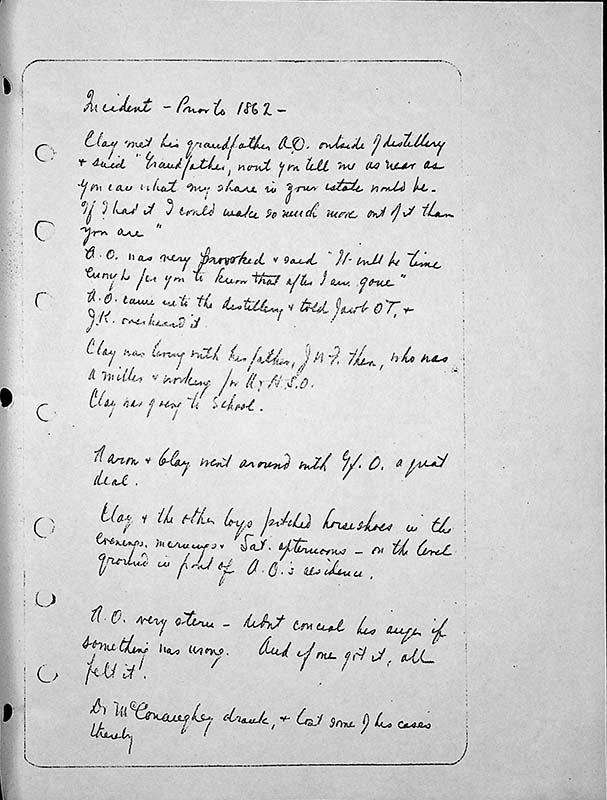 Incident - Prior to 1862 -
Clay met his grandfather A.O. outside of distillery
+ said "Grandfather, wont you tell me as near as
you can what my share in your estate would be.
If I had it I could make so much more out of it than
you are"
A.O. was very provoked + said "It will be time
enough for you to know that after I am gone"
A.O. came into the distillery + told Jacob OT, +
J.K. overheard it.
Clay was living with his father, J.W.F. then, who was
a miller + working for A + H.S.O.
Clay was going to school.
Aaron + Clay went around with Gf. O. a great
deal.
Clay + the other boys pitched horseshoes in the
evenings, mornings + Sat. afternoons - on the level
ground in front of A.O.'s residence.
A.O. very stern - didnt conceal his anger if
something was wrong. And if one got it, all
felt it.
Dr McConaughey drank, + lost some of his cases
thereby